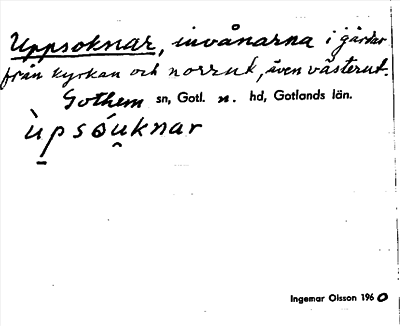 Uppsoknar, invånarna i gårdar
från kyrkan och norrut, även västerut.
Gothem sn, Gotl. n. hd, Gotlands län.
ùpsóuknar
Ingemar Olsson 1960